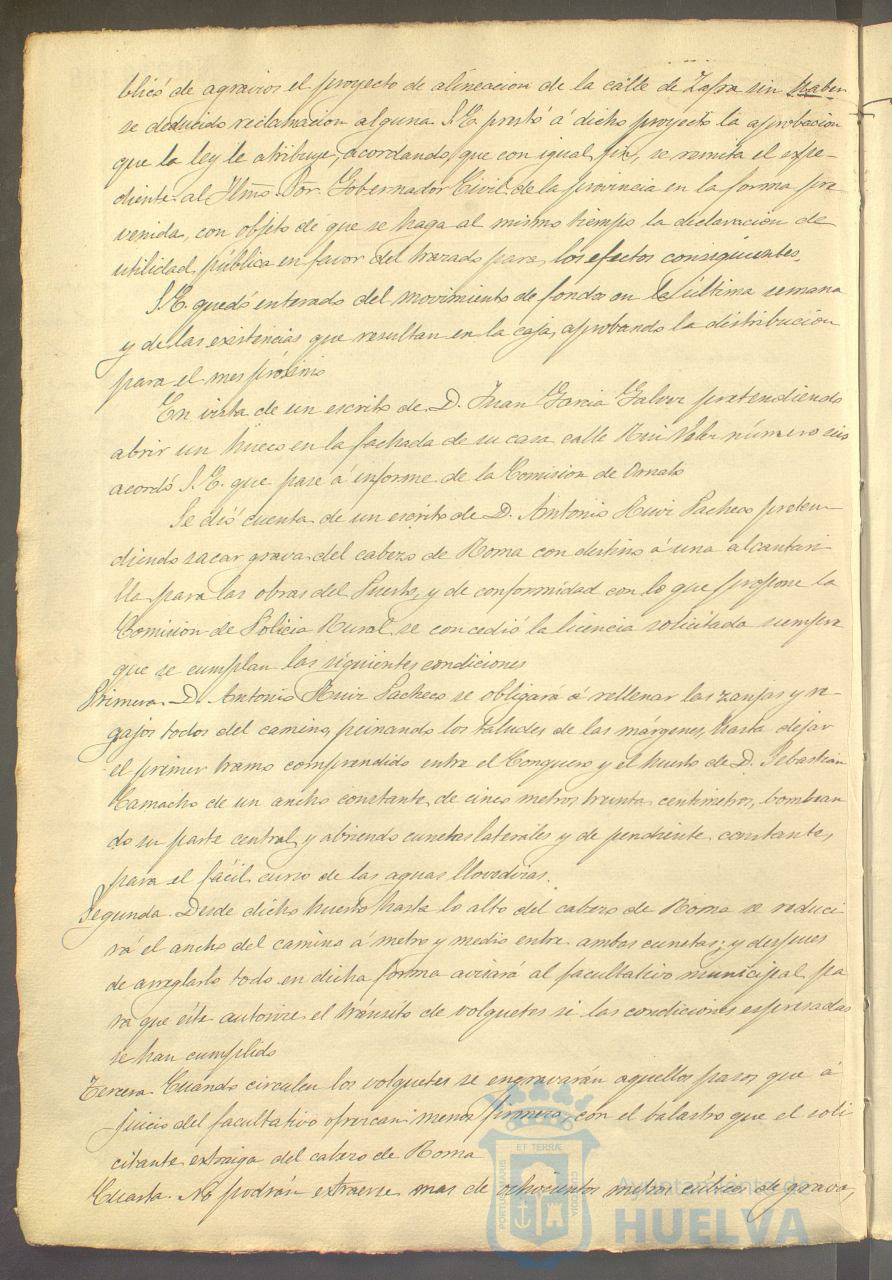 blicó de agravios el proyecto de alineacion de la calle de Zafra sin haber
se deducido reclamacion alguna S.E. prestó á dicho proyecto la aprobacion
que la ley le atribuye, acordando, que con igual fin, se remita el expe-
diente al Iltmo. Sor. Gobernador Civil de la provincia en la forma pre
venida, con objeto de que se haga al mismo tiempo la declaracion de
utilidad pública en favor del trazado para los efectos consiguientes.
S.E. quedó enterado del movimiento de fondos en la última semana
y de las existencias que resultan en la caja, aprobando la distribucion
para el mes próximo
En vista de un escrito de D. Juan Garcia Galvez pretendiendo
abrir un hueco en la fachada de su casa calle Rui Velez número seis
acordó S.E. que pase á informe de la Comision de Ornato
Se dió cuenta de un escrito de D. Antonio Ruiz Pacheco preten-
diendo sacar grava del cabezo de Roma con destino á una alcantari
lla para las obras del Puerto, y de conformidad con lo que propone la
Comision de Policia Rural se concedió la licencia solicitada siempre
que se cumplan las siguientes condiciones
Primera. D. Antonio Ruiz Pacheco se obligará á rellenar las zanjas y re-
gajos todos del camino, peinando los taludes de las márgenes, hasta dejar
el primer tramo comprendido entre el Conquero y el huerto de D. Sebastian
Camacho de un ancho constante de cinco metros treinta centímetros, bombean
do su parte central, y abriendo cunetas laterales y de pendiente constante,
para el fácil curso de las aguas llovedizas.
Segunda. Desde dicho huerto hasta lo alto del cabezo de Roma se reduci
rá el ancho del camino á metro y medio entre ambas cunetas; y despues
de arreglarlo todo en dicha forma avisará al facultativo municipal pa
ra que éste autorize el tránsito de volquetes si las condiciones espresadas
se han cumplido
Tercera. Cuando circulen los volquetes se engravarán aquellos pasos que á
juicio del facultativo ofrezcan menos firmeza con el balastro que el soli
citante extraiga del cabezo de Roma
Cuarta. No podrán extraerse mas de ochocientos metros cúbicos de grava,
PORTUS MARIS ET TERRAE CUSTODIA
Ayuntamiento de
HUELVA